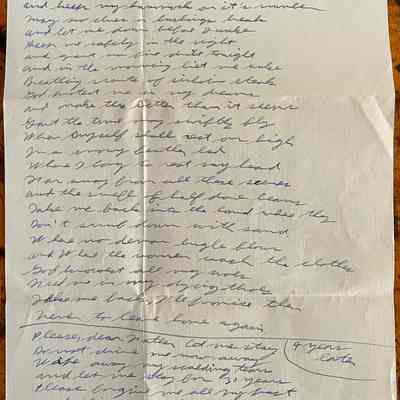 and keep my hammock on it's number
May no clues in lashings break
and let me down before I wake
Keep me safely in the night
and grant me fire drill tonight
and in the morning let me wake
Breathing scents of sirloin steak
God protect me in my dreams
and make this better than it seems
Grant the time may swiftly fly
When myself shall rest on high
In a snowy feather bed
Where I long to rest my head
Far away from all these scenes
and the smell of half done beans
Take me back into the land where they
Don't scrub down with sand
Where no demon bugle blows
and Where the women wash the clothes
God knowest all my woes
Feed me in my dying throes
Take me back, I'll promise then
Never to leave home again
Please, dear Father let me stay
Do not drive me now away
Wipe away my scalding tears
and let me stay for 31 years
Please forgive me all my past
4 years
later